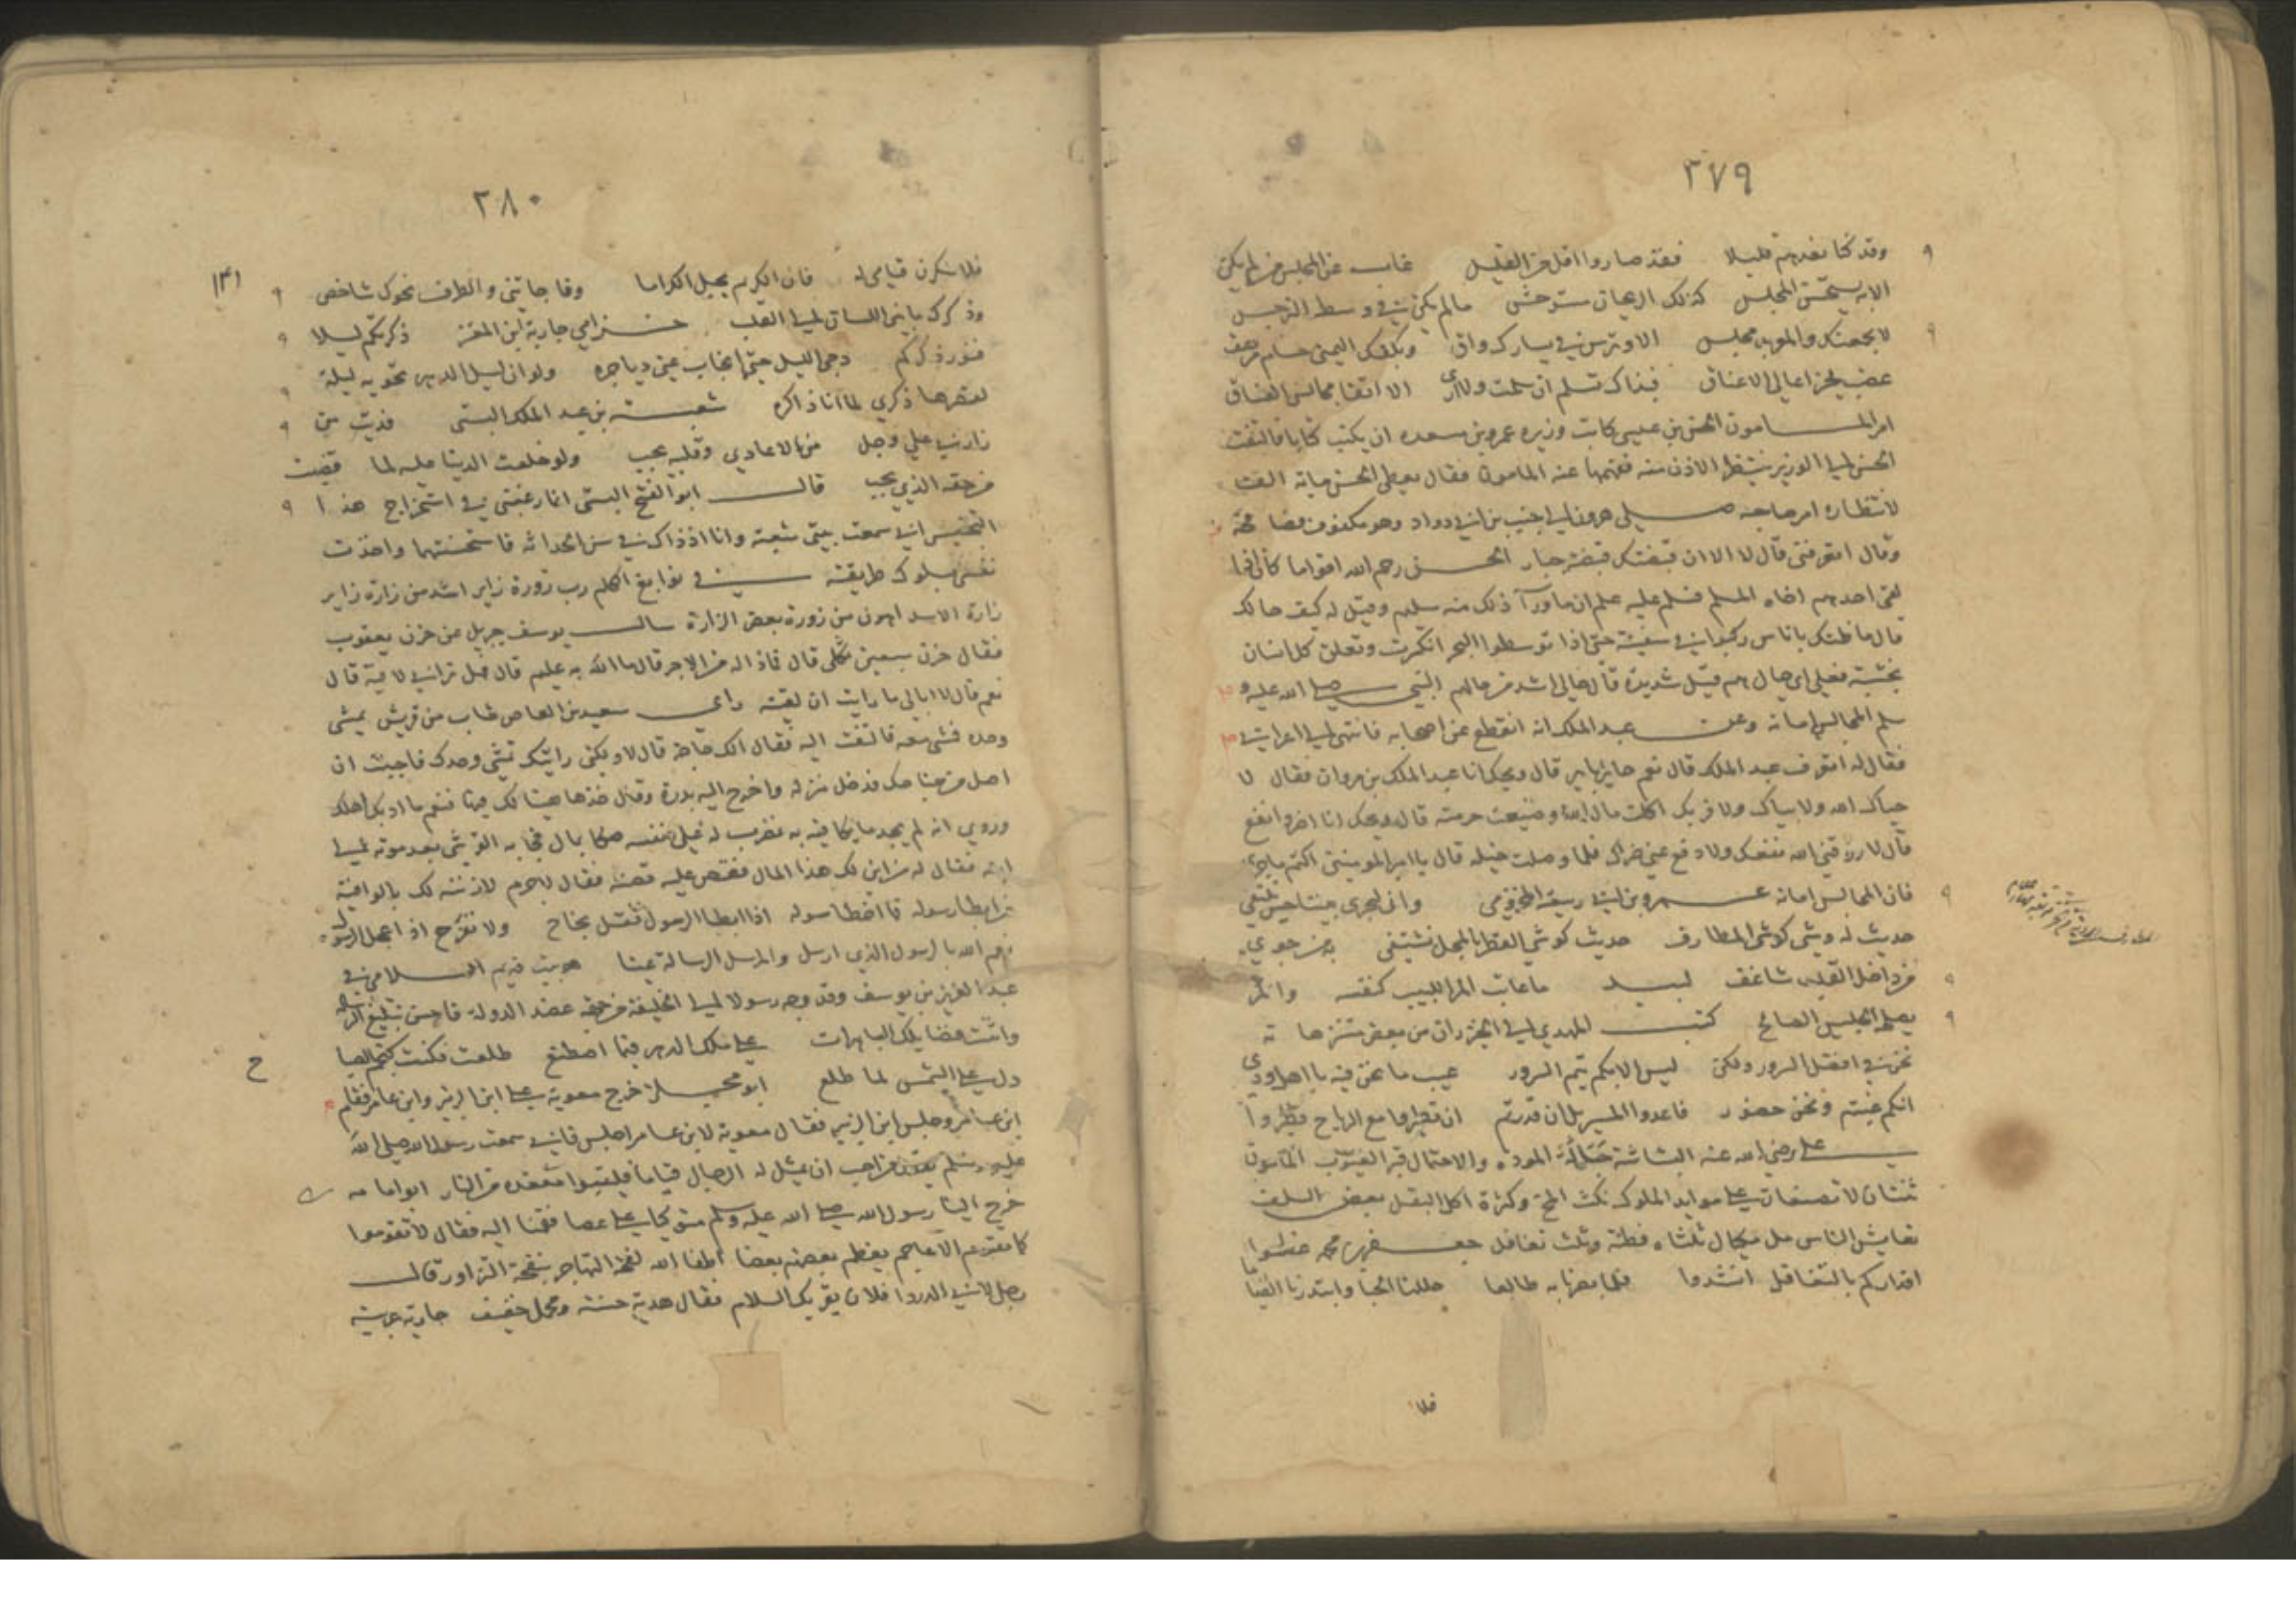 ٣٧٩
وقد كنا نعدهم قليلا فقد صاروا اقل من القليل غاب عن المجلس من لم يكن
الا به يستحسن المجلس كذلك الريحان مستوحش ما لم يكن في وسط النرجس
لا يجمعنك والهموم مجلس الا وترس في يسارك واق وبكفك اليمنى حسام مرهف
عضب يحز اعالي الاعناق فبذاك تسلم ان سلمت ولا ارى الا اتقا مجالس الفساق
امر المامون الحسن بن عيسى كاتب وزيره عمرو بن مسعده ان يكتب كتابا فالتفت
الحسن الى الوزير ينتظر الاذن منه ففهمها عنه المامون فقال يعطى الحسن مايه الف
لانتظاره امر صاحبه صلى هرون الى جنب بن ابي دواد وهو مكفوف فصا فحه
وقال اتعرفني قال لا الا ان قبضتك قبضة جبار الحسن رحم الله اقواما كان اذا
لقى احدهم اخاه المسلم فسلم عليه علم ان ما ورآ ذلك منه سليم وقيل له كيف حالك
قال ما ظنك باناس ركبوا في سفينة حتى اذا توسطوا البحر انكسرت وتعلق كل انسان
بخشبة فعلى اي حال هم قيل شديدة قال حالي اشد من حالهم النبي صلى الله عليه و
سلم المجالس امانه وعن عبد الملك انه انقطع عن اصحابه فانتهى الى اعرابي
فقال له اتعرف عبد الملك قال نعم جاير باير قال ويحك انا عبد الملك بن مروان فقال لا
حياك الله ولا بياك ولا قربك اكلت مال الله وضيعت حرمته قال ويحك انا اضر وانفع
قال لا رزقني الله نفعك ولا دفع عني ضرك فلما وصلت خيله قال يا امير المومنين اكتم ما جرى
فان المجالس امانه عمرو بن ابي ربيعة المخزومي وانا ليجري بيننا حين نلتقي
حديث له وشي كوشي المطارف حديث كوشي القطر بالمحل نشتفي به من جوي
من داخل القلب شاغف لبيد ما عاتب المر اللبيب كنفسه والمر
يصلحه الجليس الصالح كتب المهدي الى الخيزران من بعض متنزهاته
نحن في افضل السرور ولكن ليس الا بكم يتم السرور عيب ما نحن فيه يا اهل ودي
انكم غبتم ونحن حضور فاعدوا المسير بل ان قدرتم ان تطيروا مع الرياح فطيروا
علي رضي الله عنه البشاشة حبالة المودة والاحتمال قبر العيوب المامون
ثنتان لا تصنعان على موايد الملوك نكث المخ وكثرة اكل البقل بعض السلف
تعايش الناس مل مكيال ثلثاه فطنة وثلث تغافل جعفر بن محمد عظموا
اقداركم بالتغافل انشدوا فلما بصرنا به طالعا حللنا الحبا وابتدرنا القيا
فلا
٣٨٠
فلا تنكرن قيامي له فان الكريم يجل الكراما وفا جاتني والطرف نحوك شاخص
وذكرك ما بين اللسان الى القلب خزامي جارية ابن المعتز ذكرتكم ليلا
فنور ذكركم دجى الليل حتى انجاب عني دياجره ولو ان ليل الدهر تحويه ليلة
لقصرها ذكري لما انا ذاكره شعبة بن عبد الملك البستي فديت من
زارني على وجل من الاعادي وقلبه يجب ولو خلعت الدنيا عليه لما قضيت
من حقه الذي يجب قال ابو الفتح البستي انما رغبتي في استخراج هذا
التجنيس اني سمعت بيتي شعبة وانا اذ ذاك في سن الحداثة فاستحسنتهما واخذت
نفسي بسلوك طريقته في نوابغ الكلم رب زورة زاير اشد من زارة زاير
زارة الاسد اهون من زورة بعض الزارة سال يوسف جبريل عن حزن يعقوب
فقال حزن سبعين ثكلى قال فماذا له من الاجر قال ما الله به عليم قال فهل تراني لاقيه قال
نعم قال لا ابالي ما رايت ان لقيته راى سعيد بن العاص شاب من قريش يمشي
وحده فمشى معه فالتفت اليه فقال الك حاجة قال لا ولكني رايتك تمشي وحدك فاحببت ان
اصل من جناحك فدخل منزله واخرج اليه بدرة وقال خذها هيئا لك فنعم ما ادبك اهلك
وروي انه لم يجد ما يكافيه به فكتب له على نفسه صكا بمال فجا به القرشي بعد موته الى
ابنه فقال له من اين لك هذا المال فقص عليه قصته فقال لاجرم لازننه لك بالوافية
من ابطا رسوله فما اخطا سوله اذا ابطا الرسول فقل نجاح ولا تفرح اذا عجل الرسول
رحم الله بالرسول الذي ارسل والمرسل الرسالة عينا السلامي في
عبد العزيز بن يوسف وقد وجه رسولا الى الخليفة من جهة عضد الدولة فاحسن تبليغ الرسالة
وانت عضا يلك الباهرات على ملك الدهر فيما اصطنع طلعت فكنت كنجم الصبا
ح
دل على الشمس لما طلع ابو مجلز خرج معوية على ابن الزبير وابن عامر فقام
ابن عامر وجلس ابن الزبير فقال معوية لابن عامر اجلس فاني سمعت رسول الله صلى الله
عليه وسلم يقول من احب ان يمثل له الرجال قياما فليتبوا مقعده من النار ابو امامه
خرج الينا رسول الله صلى الله عليه وسلم متوكيا على عصا فقمنا اليه فقال لا تقوموا
كما تقوم الاعاجم يعظم بعضهم بعضا اطفا الله لفحة التهاجر بنفحة التزاور قال
رجل لابي الدردا فلان يقريك السلام فقال هدية حسنة ومحمل خفيف جارية عربية